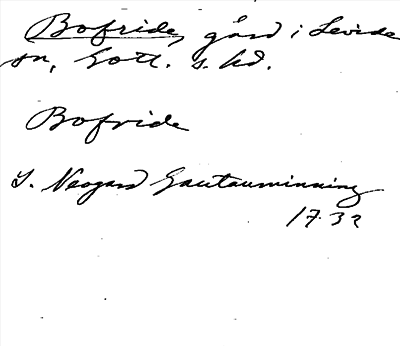 Bofride, gård i Levide
sn, Gotl. s. hd.
Bofride
J. Neogard Gautauminning
1732